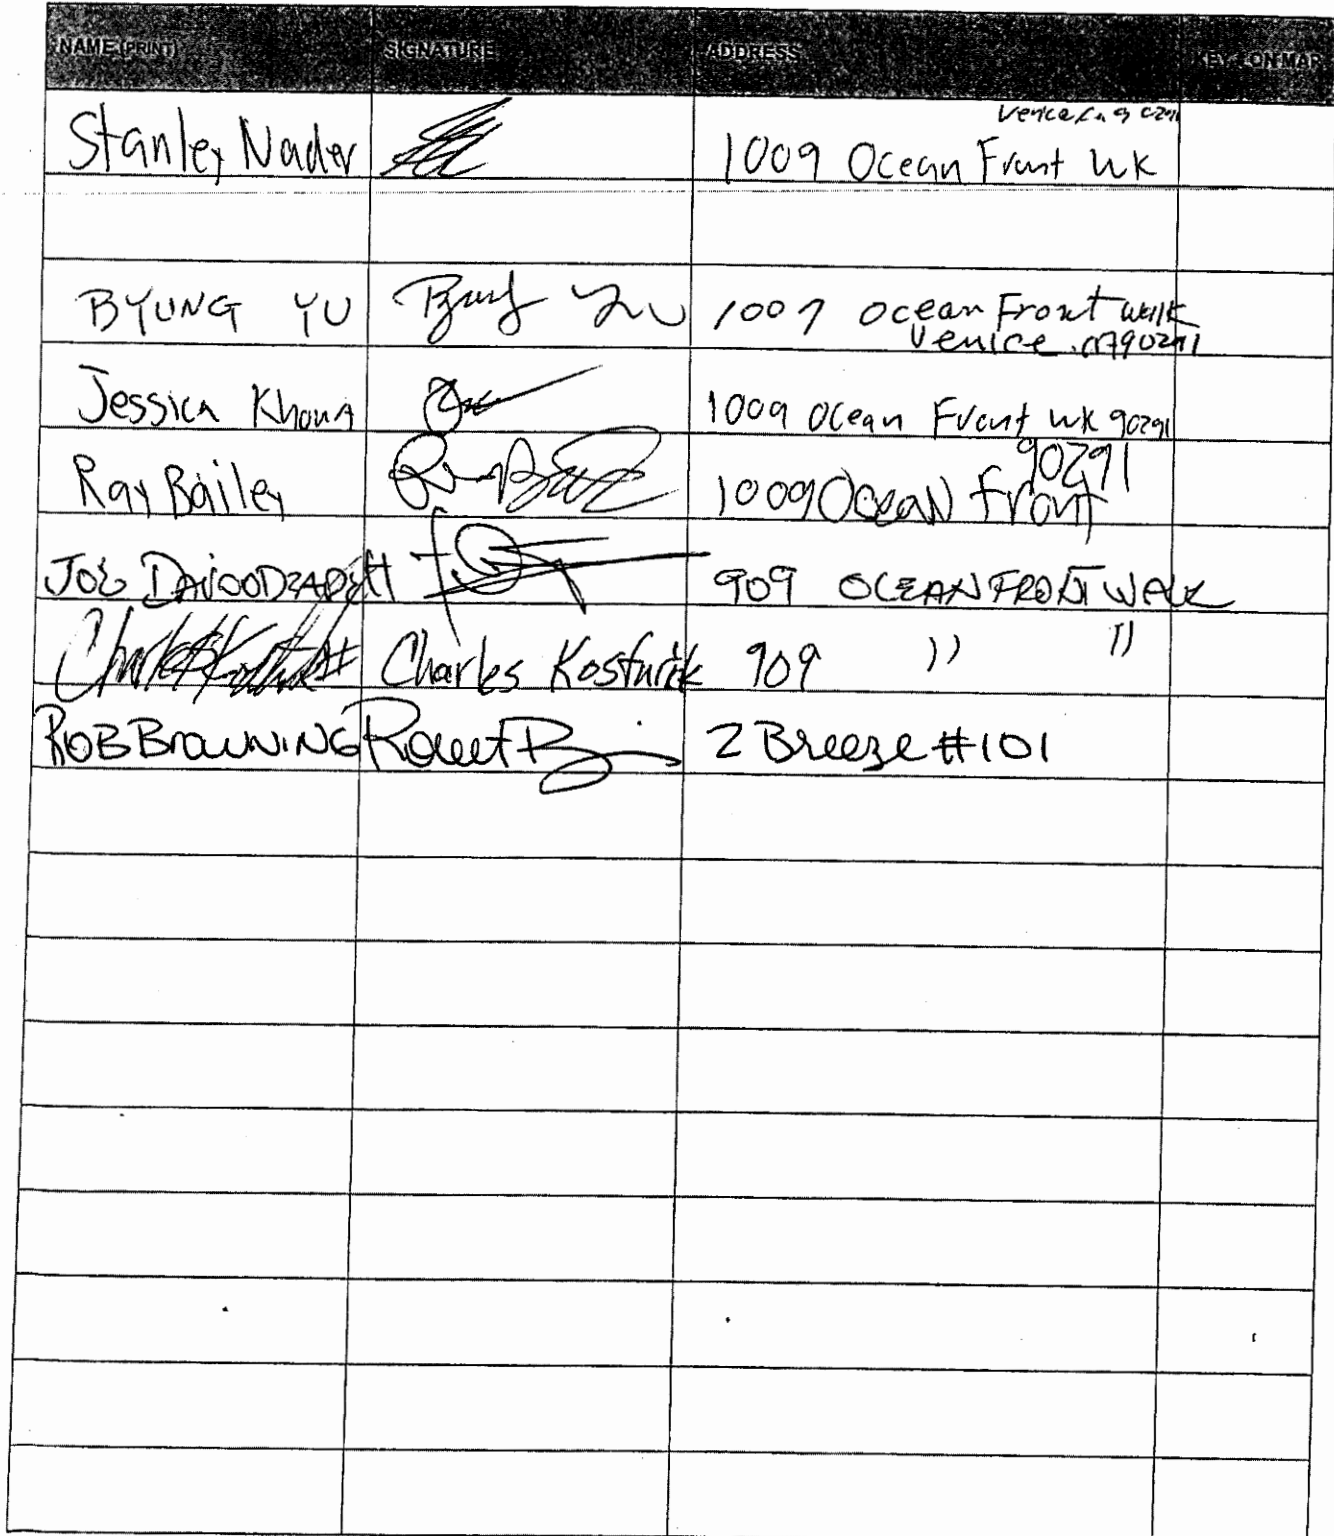 NAME (PRINT) SIGNATURE ADDRESS KEY # ON MAP
Venice Ca 90291
Stanley Nader 1009 Ocean Front Wk
BYUNG YU Byung Yu 1007 Ocean Front Walk
Venice CA 90291
Jessica Khoun 1009 Ocean Front Wk 90291
90291
Ray Bailey 1009 Ocean Front
JOE DAVOODZADEH 909 OCEAN FRONT WALK
Charles Kosturik 909 " "
ROB BROWNING Robert B 2 Breeze #101